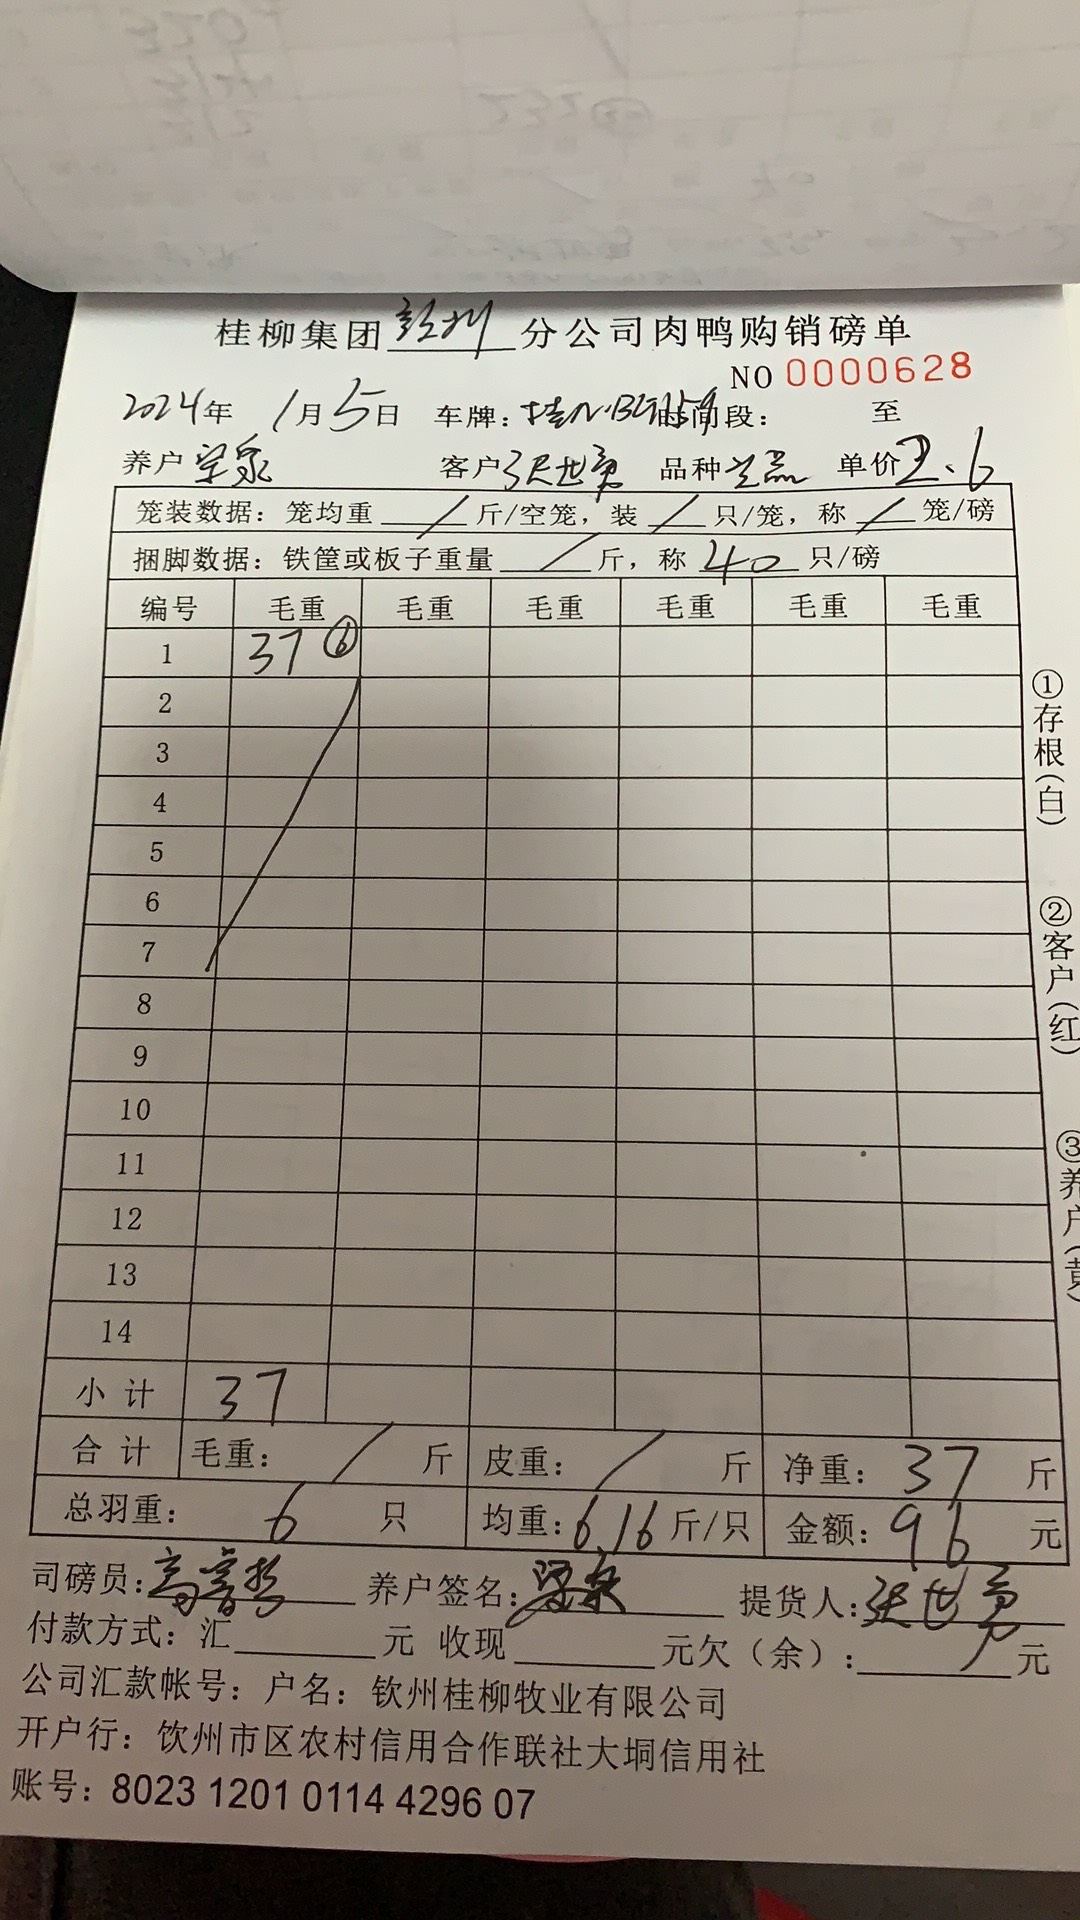 桂柳集团 钦州 分公司肉鸭购销磅单
NO 0000628
2024年 1月5日 车牌： 时间段： 至
养户 客户 张世勇 品种 单价 2.6
笼装数据：笼均重 / 斤/空笼，装 / 只/笼，称 / 笼/磅
捆脚数据：铁筐或板子重量 / 斤，称 40 只/磅
编号 毛重 毛重 毛重 毛重 毛重 毛重
1 37 ⑥
2
3
4
5
6
7
8
9
10
11
12
13
14
小 计 37
合 计 毛重： / 斤 皮重： / 斤 净重： 37 斤
总羽重： 6 只 均重：6.16 斤/只 金额：96 元
司磅员： 养户签名： 提货人：张世勇
付款方式：汇 元 收现 元欠（余）： / 元
公司汇款帐号：户名：钦州桂柳牧业有限公司
开户行：饮州市区农村信用合作联社大垌信用社
账号：8023 1201 0114 4296 07
①存根（白）
②客户（红）
③养户（黄）